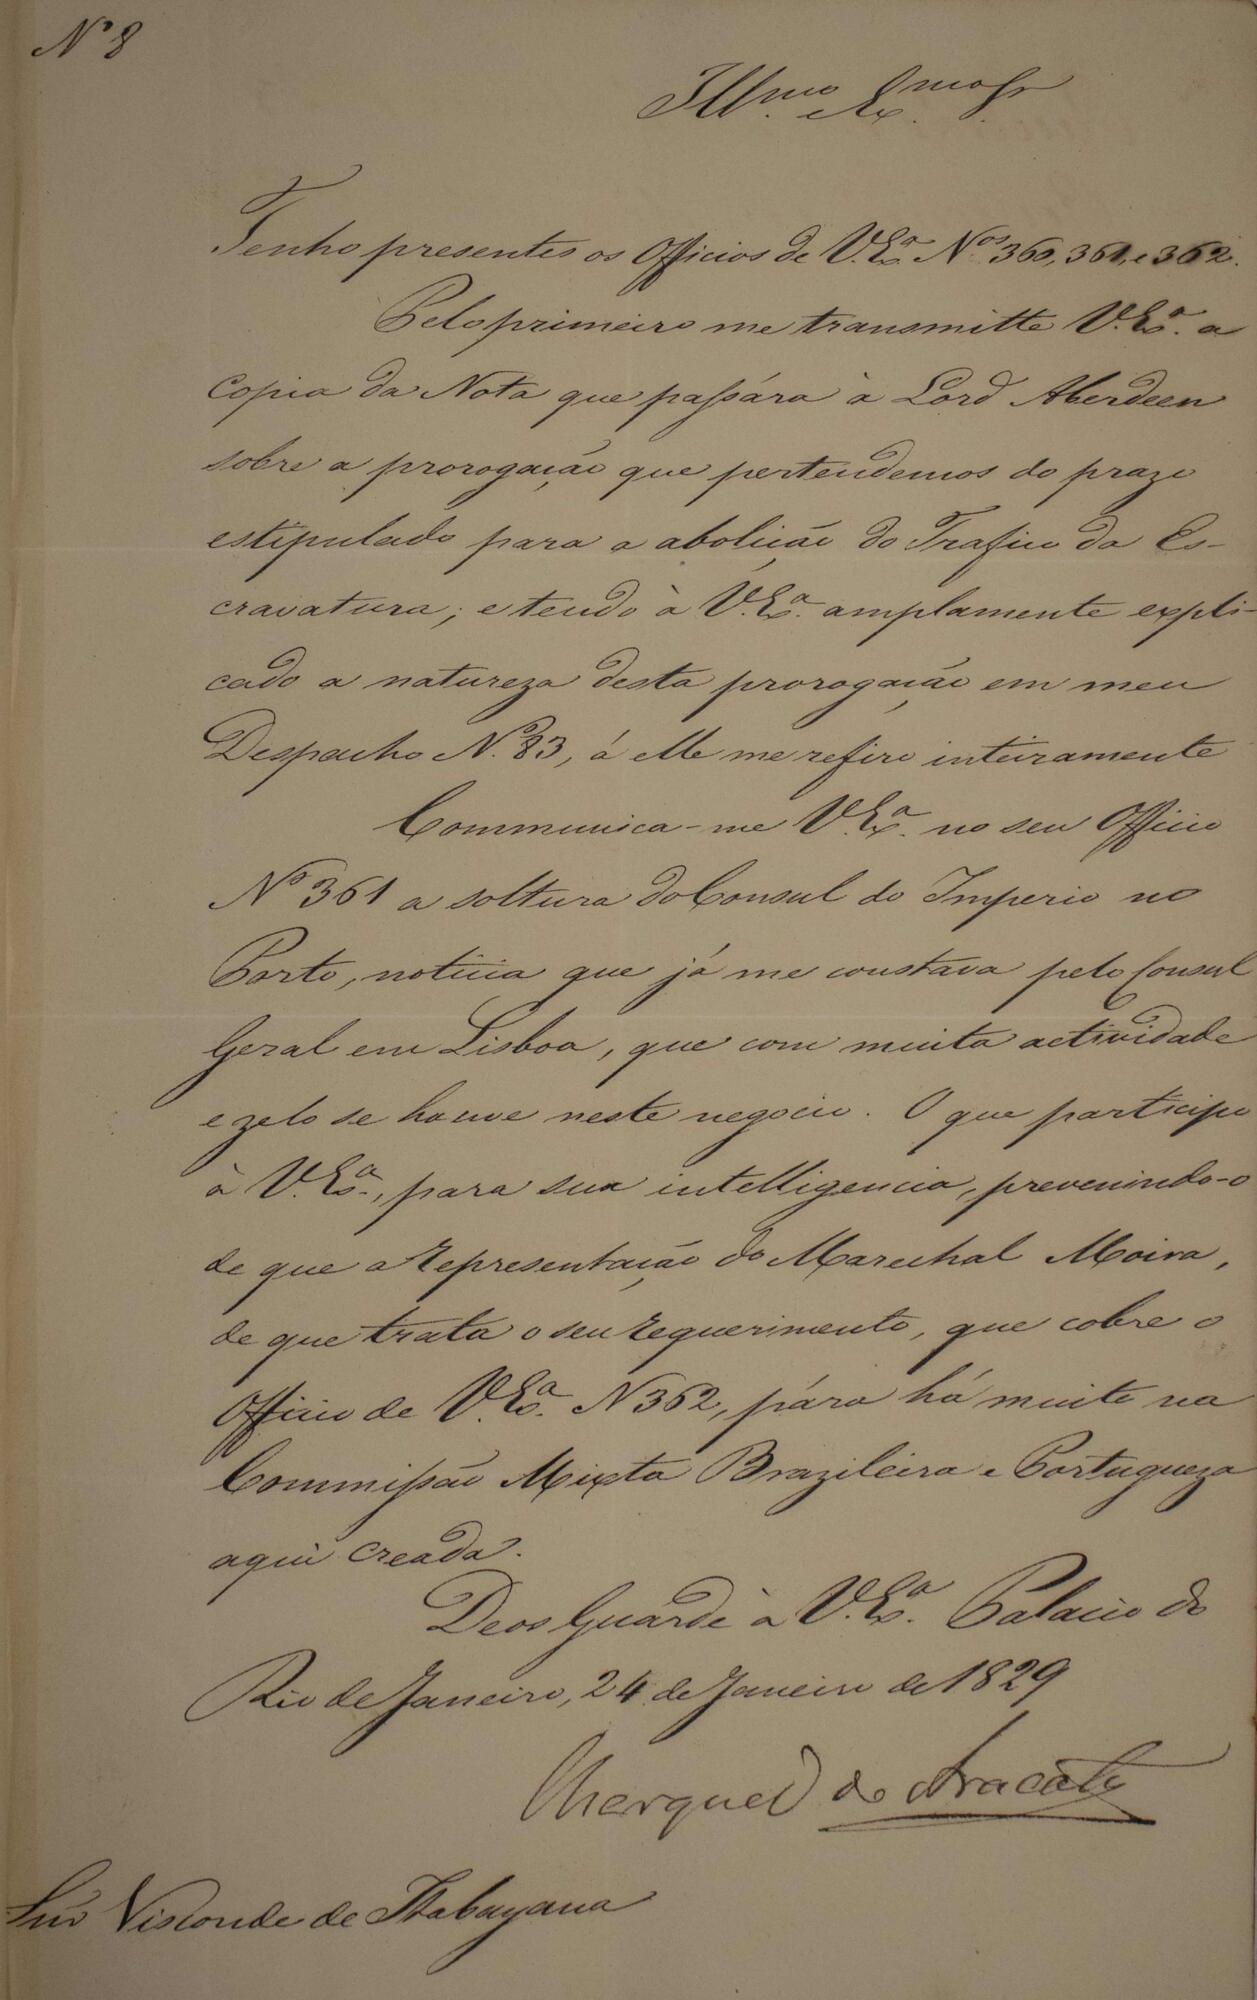 Nº 8
Illmo. e Exmo. Sr.
Tenho presentes os Officios de V. Exa. Nos. 360, 361, e 362.
Pelo primeiro me transmitte V. Exa. a
Copia da Nota que passára à Lord Aberdeen
sobre a prorogação que pertendemos do prazo
estipulado para a abolição do Trafico da Es-
cravatura; e tendo à V. Exa. amplamente expli-
cado a natureza desta prorogação em meu
Despacho Nº 83, á elle me refiro inteiramente
Communica-me V. Exa. no seu Officio
Nº 361 a soltura do Consul do Imperio no
Porto, noticia que já me constava pelo Consul
Geral em Lisboa, que com muita actividade
e zelo se houve neste negocio. O que participo
à V. Exa., para sua intelligencia, prevenindo-o
de que a representação do Marechal Moira,
de que trata o seu requerimento, que cobre o
Officio de V. Exa. N 362, pára há muito na
Commissão Mixta Brazileira e Portugueza
aqui creada.
Deos Guarde à V. Exa. Palacio do
Rio de Janeiro, 24 de Janeiro de 1829
Marquez do Aracaty
Snr Visconde de Itabayana